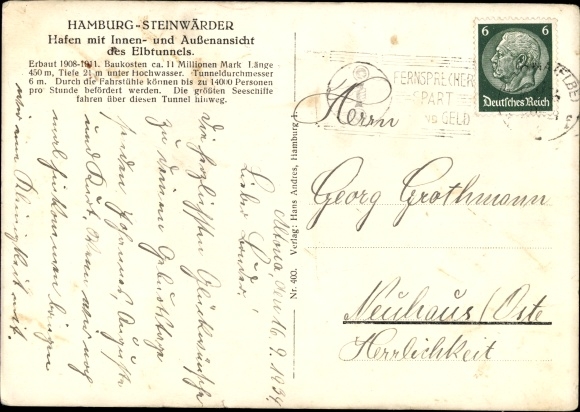 HAMBURG-STEINWÄRDER
Hafen mit Innen- und Außenansicht
des Elbtunnels.
Erbaut 1908-1911. Baukosten ca. 11 Millionen Mark Länge
450 m, Tiefe 21 m unter Hochwasser. Tunneldurchmesser
6 m. Durch die Fahrstühle können bis zu 14000 Personen
pro Stunde befördert werden. Die größten Seeschiffe
fahren über diesen Tunnel hinweg.
Altona den 16. 9. 1934
Lieber Bruder!
Die herzlichsten Glückwünsche
zu deinem Geburtstage
Johannes, Auguste
und Kurt. Wenn wir noch
mal hinkommen bringen
wir eine Kleinigkeit mit.
Nr. 400. Verlag: Hans Andres, Hamburg 1.
FERNSPRECHER
SPART
GELD
6 6
Deutsches Reich
Herrn
Georg Grothmann
Neuhaus/Oste
Herrlichkeit